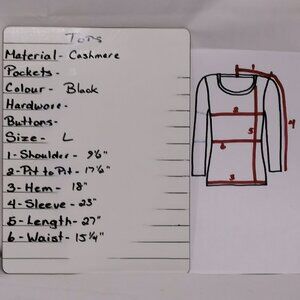 Tops
Material - Cashmere
Pockets -
Colour - Black
Hardware -
Buttons -
Size - L
1 - Shoulder - 9½"
2 - Pit to Pit - 17½"
3 - Hem - 18"
4 - Sleeve - 23"
5 - Length - 27"
6 - Waist - 15¼"
1
2
5
6
3
4